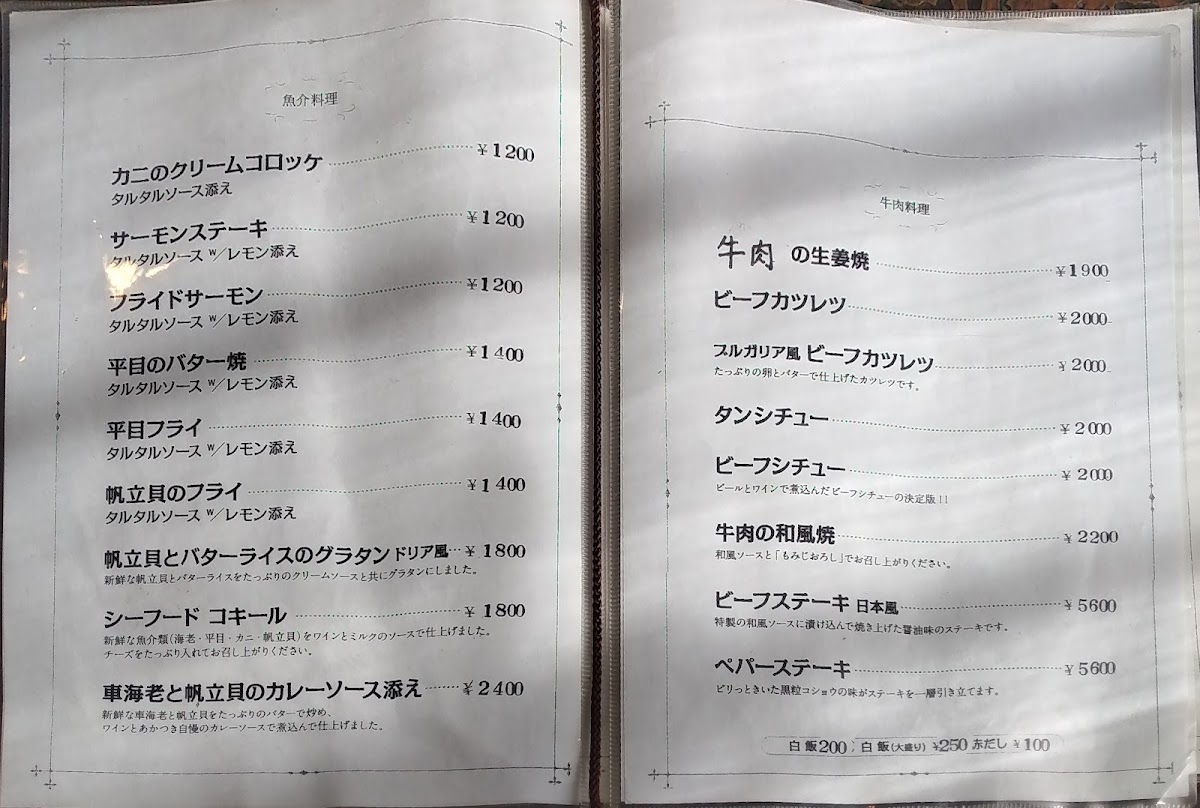 魚介料理
カニのクリームコロッケ ¥1200
タルタルソース添え
サーモンステーキ ¥1200
タルタルソース w/レモン添え
フライドサーモン ¥1200
タルタルソース w/レモン添え
平目のバター焼 ¥1400
タルタルソース w/レモン添え
平目フライ ¥1400
タルタルソース w/レモン添え
帆立貝のフライ ¥1400
タルタルソース w/レモン添え
帆立貝とバターライスのグラタン ドリア風 ¥1800
新鮮な帆立貝とバターライスをたっぷりのクリームソースと共にグラタンにしました。
シーフード コキール ¥1800
新鮮な魚介類(海老・平目・カニ・帆立貝)をワインとミルクのソースで仕上げました。
チーズをたっぷり入れてお召し上がりください。
車海老と帆立貝のカレーソース添え ¥2400
新鮮な車海老と帆立貝をたっぷりのバターで炒め、
ワインとあかつき自慢のカレーソースで煮込んで仕上げました。
牛肉料理
牛肉の生姜焼 ¥1900
ビーフカツレツ ¥2000
ブルガリア風 ビーフカツレツ ¥2000
たっぷりの卵とバターで仕上げたカツレツです。
タンシチュー ¥2000
ビーフシチュー ¥2000
ビールとワインで煮込んだビーフシチューの決定版!!
牛肉の和風焼 ¥2200
和風ソースと「もみじおろし」でお召し上がりください。
ビーフステーキ 日本風 ¥5600
特製の和風ソースに漬け込んで焼き上げた醤油味のステーキです。
ペパーステーキ ¥5600
ピリっときいた黒粒コショウの味がステーキを一層引き立てます。
白飯200 白飯(大盛り) ¥250 赤だし ¥100